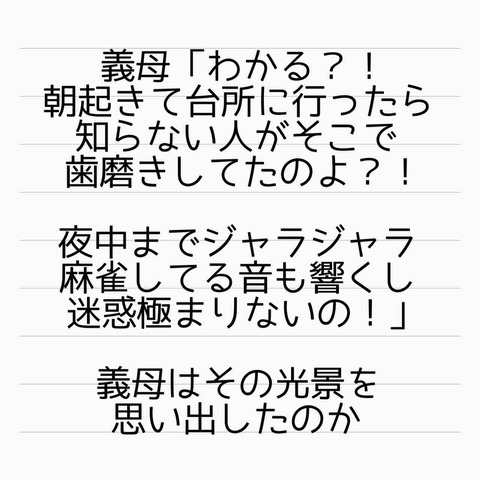 義母「わかる？！
朝起きて台所に行ったら
知らない人がそこで
歯磨きしてたのよ？！
夜中までジャラジャラ
麻雀してる音も響くし
迷惑極まりないの！」
義母はその光景を
思い出したのか